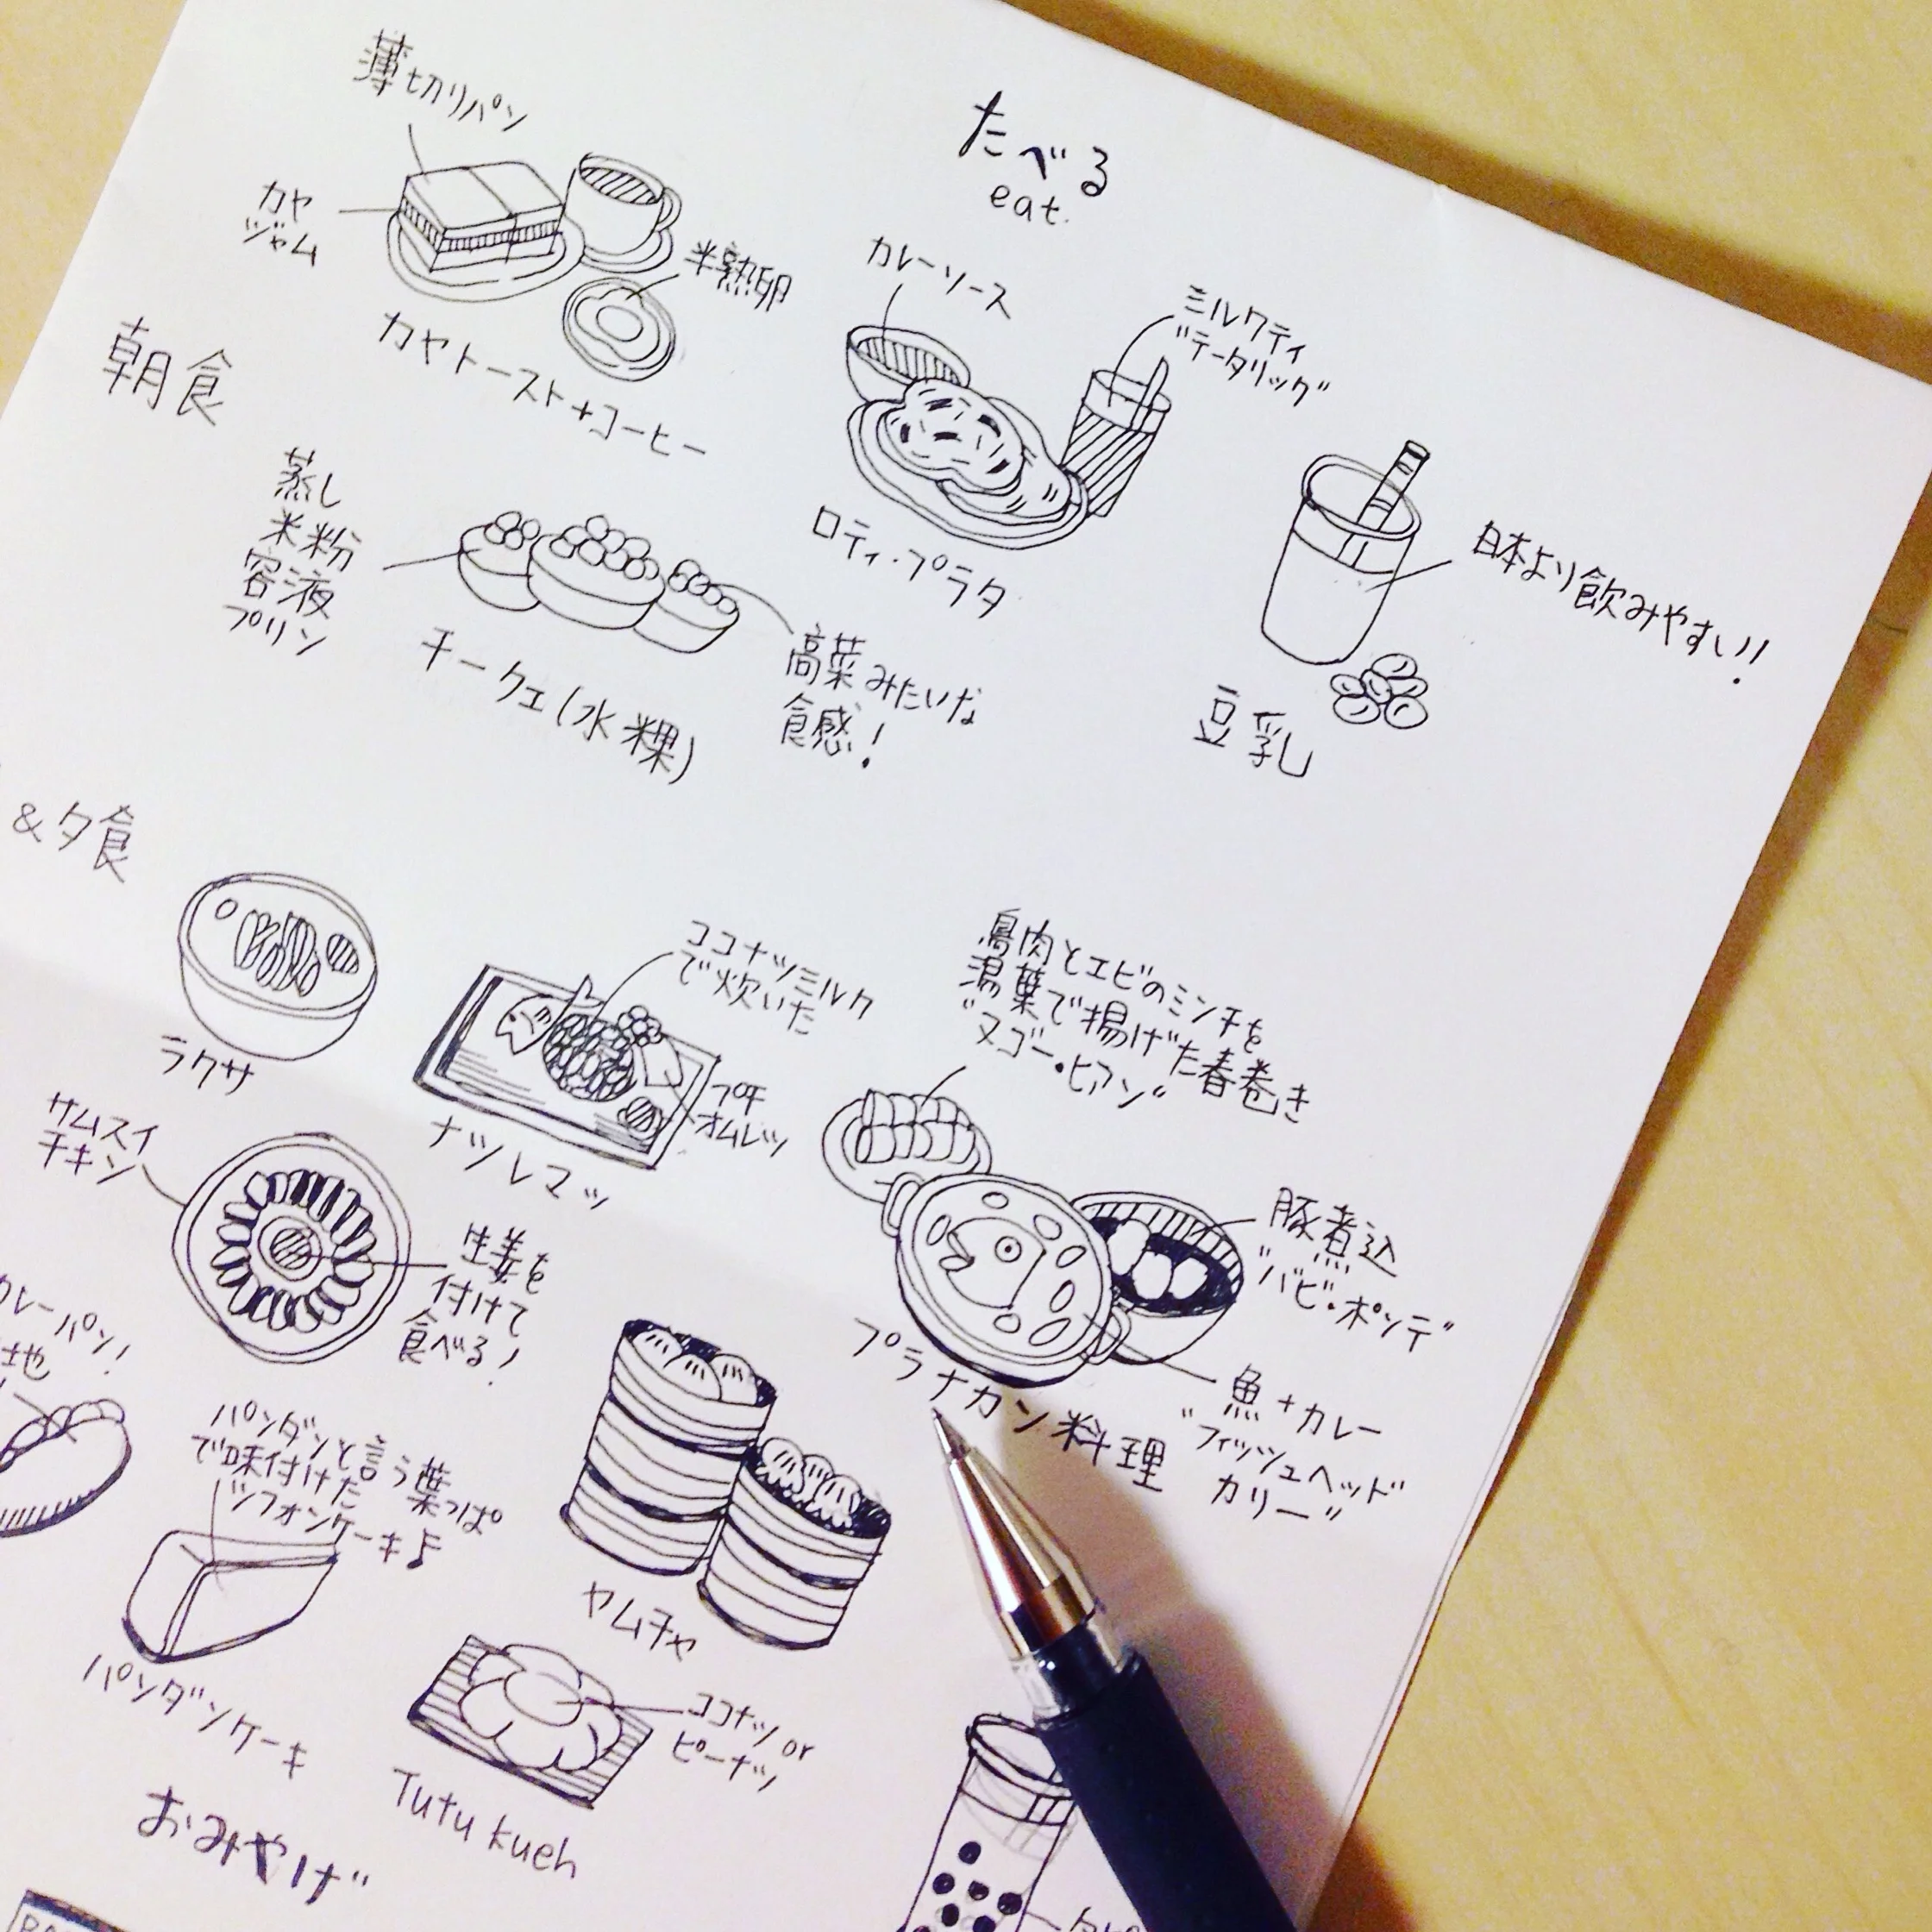 たべる
eat.
薄切りパン
カヤ
ジャム
半熟卵
カヤトースト+コーヒー
カレーソース
ミルクティ
"テータリッグ"
ロティ・プラタ
朝食
蒸し
米粉
容液
プリン
高菜みたいな
食感!
チークエ(水粿)
日本より飲みやすい!!
豆乳
&夕食
ラクサ
ココナッツミルク
で炊いた
プチ
オムレツ
ナツレマッ
鳥肉とエビのミンチを
湯葉で揚げた春巻き
"ヌゴー・ヒアン"
豚煮込
"バビ・ポンデ"
魚+カレー
"フィッシュヘッド
カリー"
プラナカン料理
サムスイ
チキン
生姜を
付けて
食べる!
カレーパン!
生地
ヤムチャ
パンダンと言う葉っぱ
で味付けた
シフォンケーキ♪
パンダンケーキ
ココナッツor
ピーナッツ
Tutu kueh
おみやげ